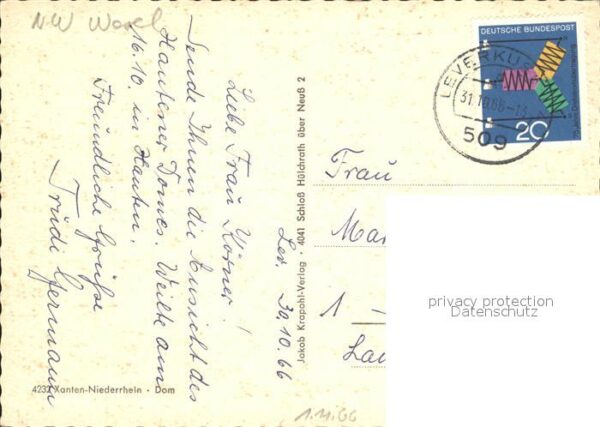 NW Wesel
DEUTSCHE BUNDESPOST
20
LEVERKUS
31.10.66-1
509
Lev. 30.10.66
Liebe Frau Körner!
Sende Ihnen die Ansicht des
Xantener Domes. Weilte am
16.10. in Xanten.
Freundliche Grüße
Trudi Germann
Jakob Krapohl-Verlag · 4041 Schloß Hülchrath über Neuß 2
Frau
Mar
1 -
Lau
privacy protection
Datenschutz
4232 Xanten-Niederrhein · Dom
1.11.66